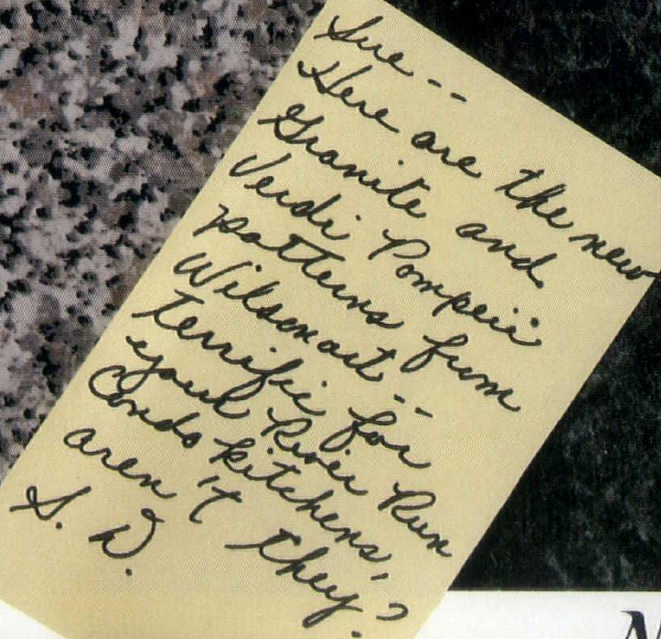 Sue--
Here are the new
Granite and
Verdi Pompeii
patterns from
Wilsonart--
terrific for
your River Run
Condo kitchens,
aren't they?
S. D.
N